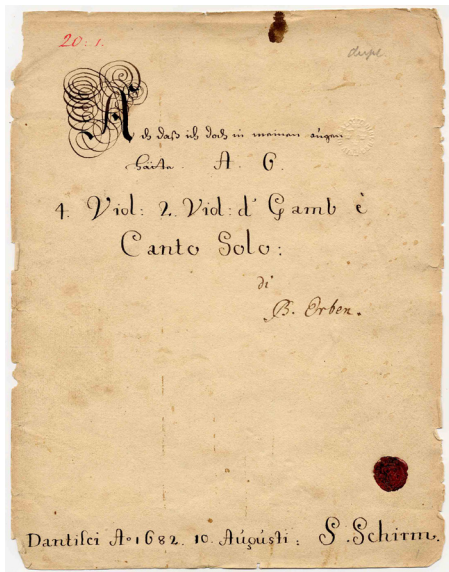 20: 1.
dupl
Ach daß ich doch in meinen augen
hätte. A. 6.
4. Viol: 2. Viol: d' Gamb è
Canto Solo:
di
B. Erben.
Dantisci Ao 1682. 10. Augusti: S. Schirm.